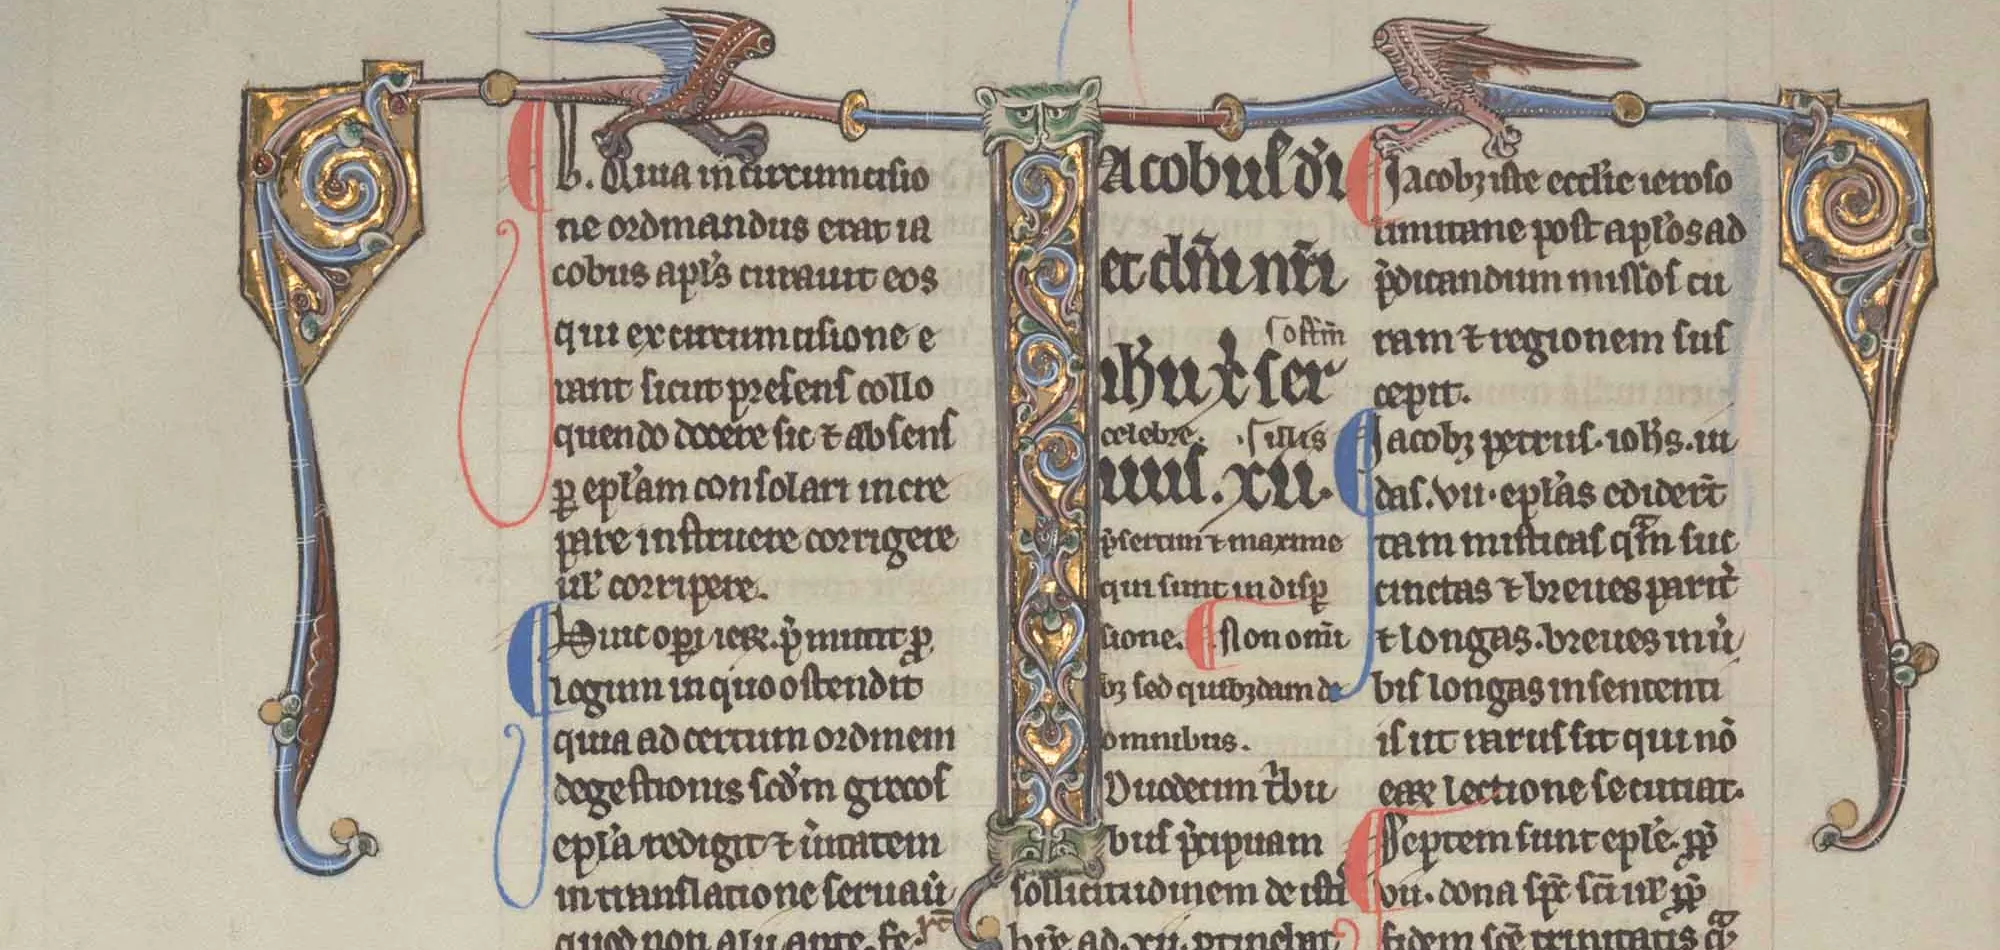 b. Quia in circumcisio
ne ordinandus erat ia
cobus apl's curauit eos
qui ex circumcisione e
rant sicut presens collo
quendo docere sic ⁊ absens
ꝑ epl'am consolari incre
pare instruere corrigere
ul' corripere.
logum in quo ostendit
quia ad certum ordinem
degestionis scd'm grecos
epl'a redigit ⁊ ueritatem
in translatione seruau
quod non alii ante. fe
Iacobus di
et dñi nr̃i
s. ostm̃
ihu xp̃ ser
celebre. .s. illis
uus. xii.
p̃sertim ⁊ maxime
qui sunt in disꝑ
sione. Non omi
bꝫ sed quibꝫdam de
omnibus.
Duodecim tbu
bus p̃cipuam
sollicitudinem de isti
Iacobꝫ iste ecclie ieroso
limitane post apl'os ad
p̃dicandum missos cu
ram ⁊ regionem sus
cepit.
Iacobꝫ petrus. ioh's. iu
das. vii. epl'as ediderũt
tam misticas qm̃ suc
cinctas ⁊ breues parit'
⁊ longas. breues in u'
bis longas in sententi
is ut rarus sit qui nõ
eaꝝ lectione secutiat.
Septem sunt epl'e. ꝓp̃
vii. dona sps sci ul' ꝓp̃
fidem sce trinitatis